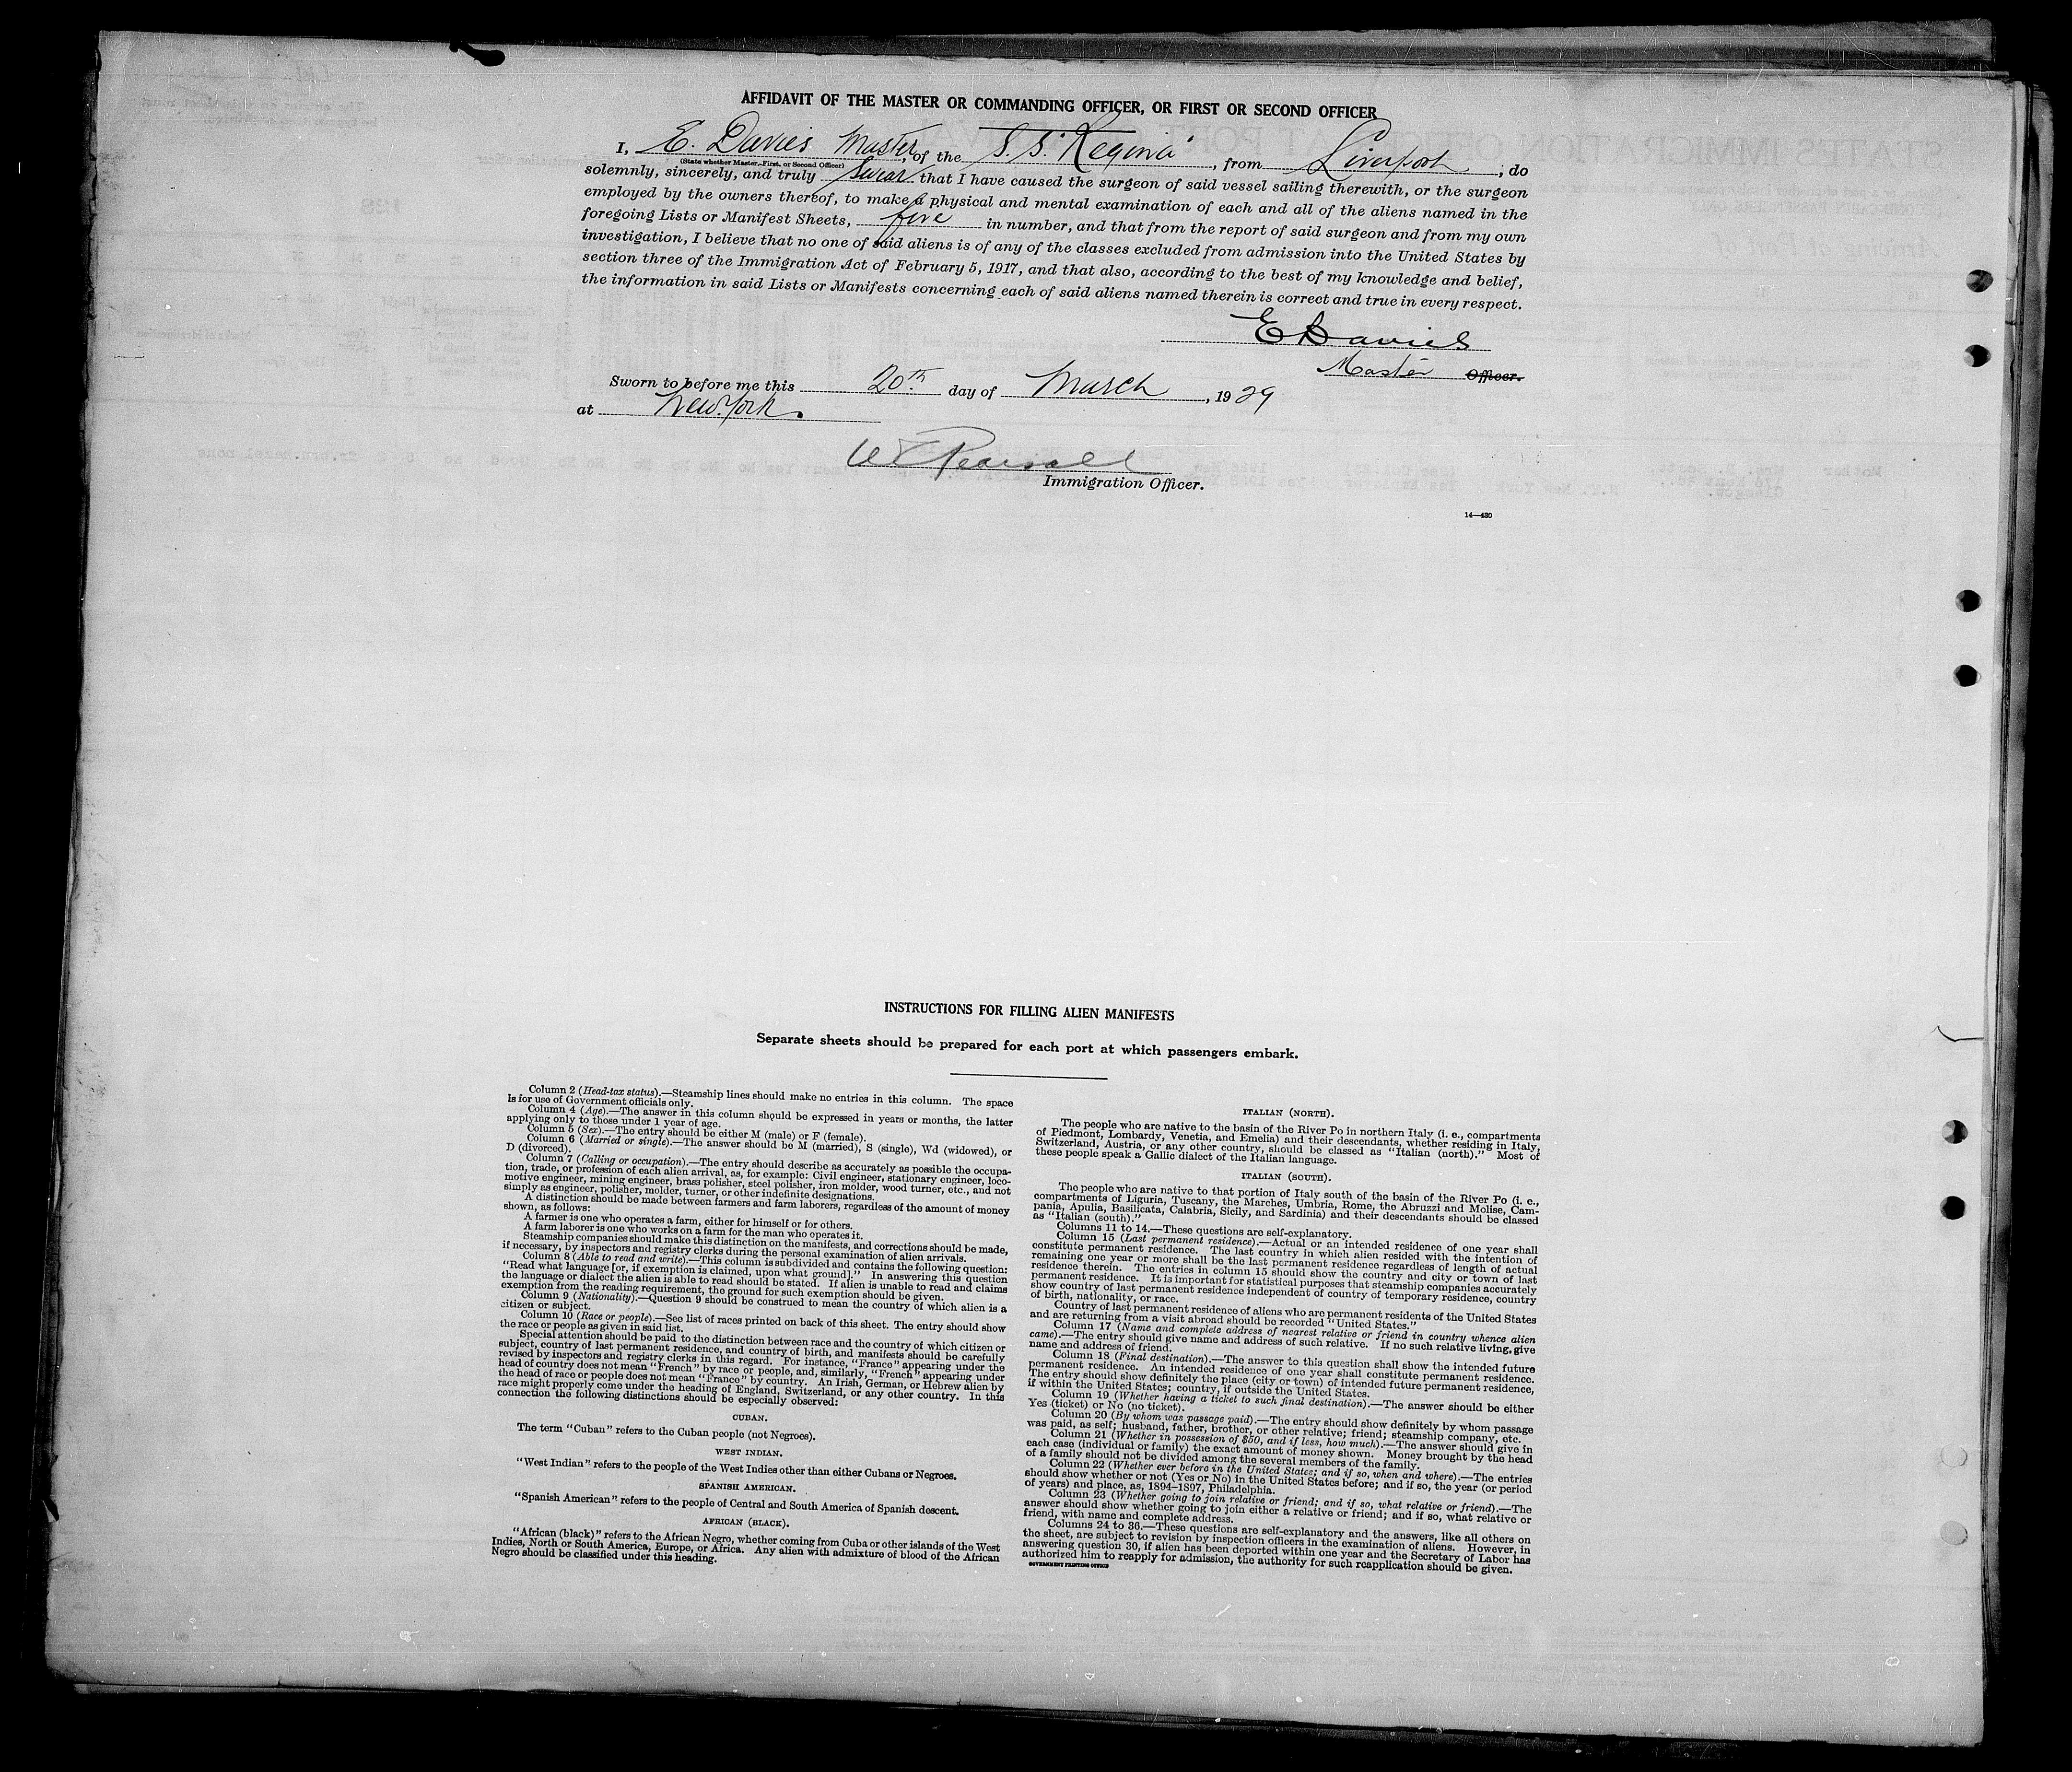 AFFIDAVIT OF THE MASTER OR COMMANDING OFFICER, OR FIRST OR SECOND OFFICER
I, E. Davies Master, of the S.S. "Regina", from Liverpool, do
(State whether Master, First, or Second Officer)
solemnly, sincerely, and truly swear that I have caused the surgeon of said vessel sailing therewith, or the surgeon
employed by the owners thereof, to make a physical and mental examination of each and all of the aliens named in the
foregoing Lists or Manifest Sheets, five in number, and that from the report of said surgeon and from my own
investigation, I believe that no one of said aliens is of any of the classes excluded from admission into the United States by
section three of the Immigration Act of February 5, 1917, and that also, according to the best of my knowledge and belief,
the information in said Lists or Manifests concerning each of said aliens named therein is correct and true in every respect.
E Davies
Master Officer.
Sworn to before me this 20th day of March, 1929
at New York.
Pearsall
Immigration Officer.
14—430
INSTRUCTIONS FOR FILLING ALIEN MANIFESTS
Separate sheets should be prepared for each port at which passengers embark.
Column 2 (Head-tax status).—Steamship lines should make no entries in this column. The space
is for use of Government officials only.
Column 4 (Age).—The answer in this column should be expressed in years or months, the latter
applying only to those under 1 year of age.
Column 5 (Sex).—The entry should be either M (male) or F (female).
Column 6 (Married or single).—The answer should be M (married), S (single), Wd (widowed), or
D (divorced).
Column 7 (Calling or occupation).—The entry should describe as accurately as possible the occupa-
tion, trade, or profession of each alien arrival, as, for example: Civil engineer, stationary engineer, loco-
motive engineer, mining engineer, brass polisher, steel polisher, iron molder, wood turner, etc., and not
simply as engineer, polisher, molder, turner, or other indefinite designations.
A distinction should be made between farmers and farm laborers, regardless of the amount of money
shown, as follows:
A farmer is one who operates a farm, either for himself or for others.
A farm laborer is one who works on a farm for the man who operates it.
Steamship companies should make this distinction on the manifests, and corrections should be made,
if necessary, by inspectors and registry clerks during the personal examination of alien arrivals.
Column 8 (Able to read and write).—This column is subdivided and contains the following question:
"Read what language [or, if exemption is claimed, upon what ground]." In answering this question
the language or dialect the alien is able to read should be stated. If alien is unable to read and claims
exemption from the reading requirement, the ground for such exemption should be given.
Column 9 (Nationality).—Question 9 should be construed to mean the country of which alien is a
citizen or subject.
Column 10 (Race or people).—See list of races printed on back of this sheet. The entry should show
the race or people as given in said list.
Special attention should be paid to the distinction between race and the country of which citizen or
subject, country of last permanent residence, and country of birth, and manifests should be carefully
revised by inspectors and registry clerks in this regard. For instance, "France" appearing under the
head of country does not mean "French" by race or people, and, similarly, "French" appearing under
the head of race or people does not mean "France" by country. An Irish, German, or Hebrew alien by
race might properly come under the heading of England, Switzerland, or any other country. In this
connection the following distinctions should be especially observed:
CUBAN.
The term "Cuban" refers to the Cuban people (not Negroes).
WEST INDIAN.
"West Indian" refers to the people of the West Indies other than either Cubans or Negroes.
SPANISH AMERICAN.
"Spanish American" refers to the people of Central and South America of Spanish descent.
AFRICAN (BLACK).
"African (black)" refers to the African Negro, whether coming from Cuba or other islands of the West
Indies, North or South America, Europe, or Africa. Any alien with admixture of blood of the African
Negro should be classified under this heading.
ITALIAN (NORTH).
The people who are native to the basin of the River Po in northern Italy (i. e., compartments
of Piedmont, Lombardy, Venetia, and Emelia) and their descendants, whether residing in Italy,
Switzerland, Austria, or any other country, should be classed as "Italian (north)." Most of
these people speak a Gallic dialect of the Italian language.
ITALIAN (SOUTH).
The people who are native to that portion of Italy south of the basin of the River Po (i. e.,
compartments of Liguria, Tuscany, the Marches, Umbria, Rome, the Abruzzi and Molise, Cam-
pania, Apulia, Basilicata, Calabria, Sicily, and Sardinia) and their descendants should be classed
as "Italian (south)."
Columns 11 to 14.—These questions are self-explanatory.
Column 15 (Last permanent residence).—Actual or an intended residence of one year shall
constitute permanent residence. The last country in which alien resided with the intention of
remaining one year or more shall be the last permanent residence regardless of length of actual
residence therein. The entries in column 15 should show the country and city or town of last
permanent residence. It is important for statistical purposes that steamship companies accurately
show country of last permanent residence independent of country of temporary residence, country
of birth, nationality, or race.
Country of last permanent residence of aliens who are permanent residents of the United States
and are returning from a visit abroad should be recorded "United States."
Column 17 (Name and complete address of nearest relative or friend in country whence alien
came).—The entry should give name and address of such relative. If no such relative living, give
name and address of friend.
Column 18 (Final destination).—The answer to this question shall show the intended future
permanent residence. An intended residence of one year shall constitute permanent residence.
The entry should show definitely the place (city or town) of intended future permanent residence,
if within the United States; country, if outside the United States.
Column 19 (Whether having a ticket to such final destination).—The answer should be either
Yes (ticket) or No (no ticket).
Column 20 (By whom was passage paid).—The entry should show definitely by whom passage
was paid, as self; husband, father, brother, or other relative; friend; steamship company, etc.
Column 21 (Whether in possession of $50, and if less, how much).—The answer should give in
each case (individual or family) the exact amount of money shown. Money brought by the head
of a family should not be divided among the several members of the family.
Column 22 (Whether ever before in the United States; and if so, when and where).—The entries
should show whether or not (Yes or No) in the United States before; and if so, the year (or period
of years) and place, as, 1894–1897, Philadelphia.
Column 23 (Whether going to join relative or friend; and if so, what relative or friend).—The
answer should show whether going to join either a relative or friend; and if so, what relative or
friend, with name and complete address.
Columns 24 to 36.—These questions are self-explanatory and the answers, like all others on
the sheet, are subject to revision by inspection officers in the examination of aliens. However, in
answering question 30, if alien has been deported within one year and the Secretary of Labor has
authorized him to reapply for admission, the authority for such reapplication should be given.
GOVERNMENT PRINTING OFFICE